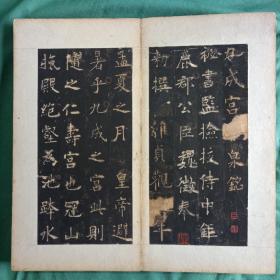 九成宮 泉銘
秘書監撿挍侍中鉅
鹿郡公臣魏徵奉
勅撰 維貞觀 年
孟夏之月 皇帝避
暑乎九成之宮此則
隨之仁壽宮也冠山
抗殿絕壑為池跨水